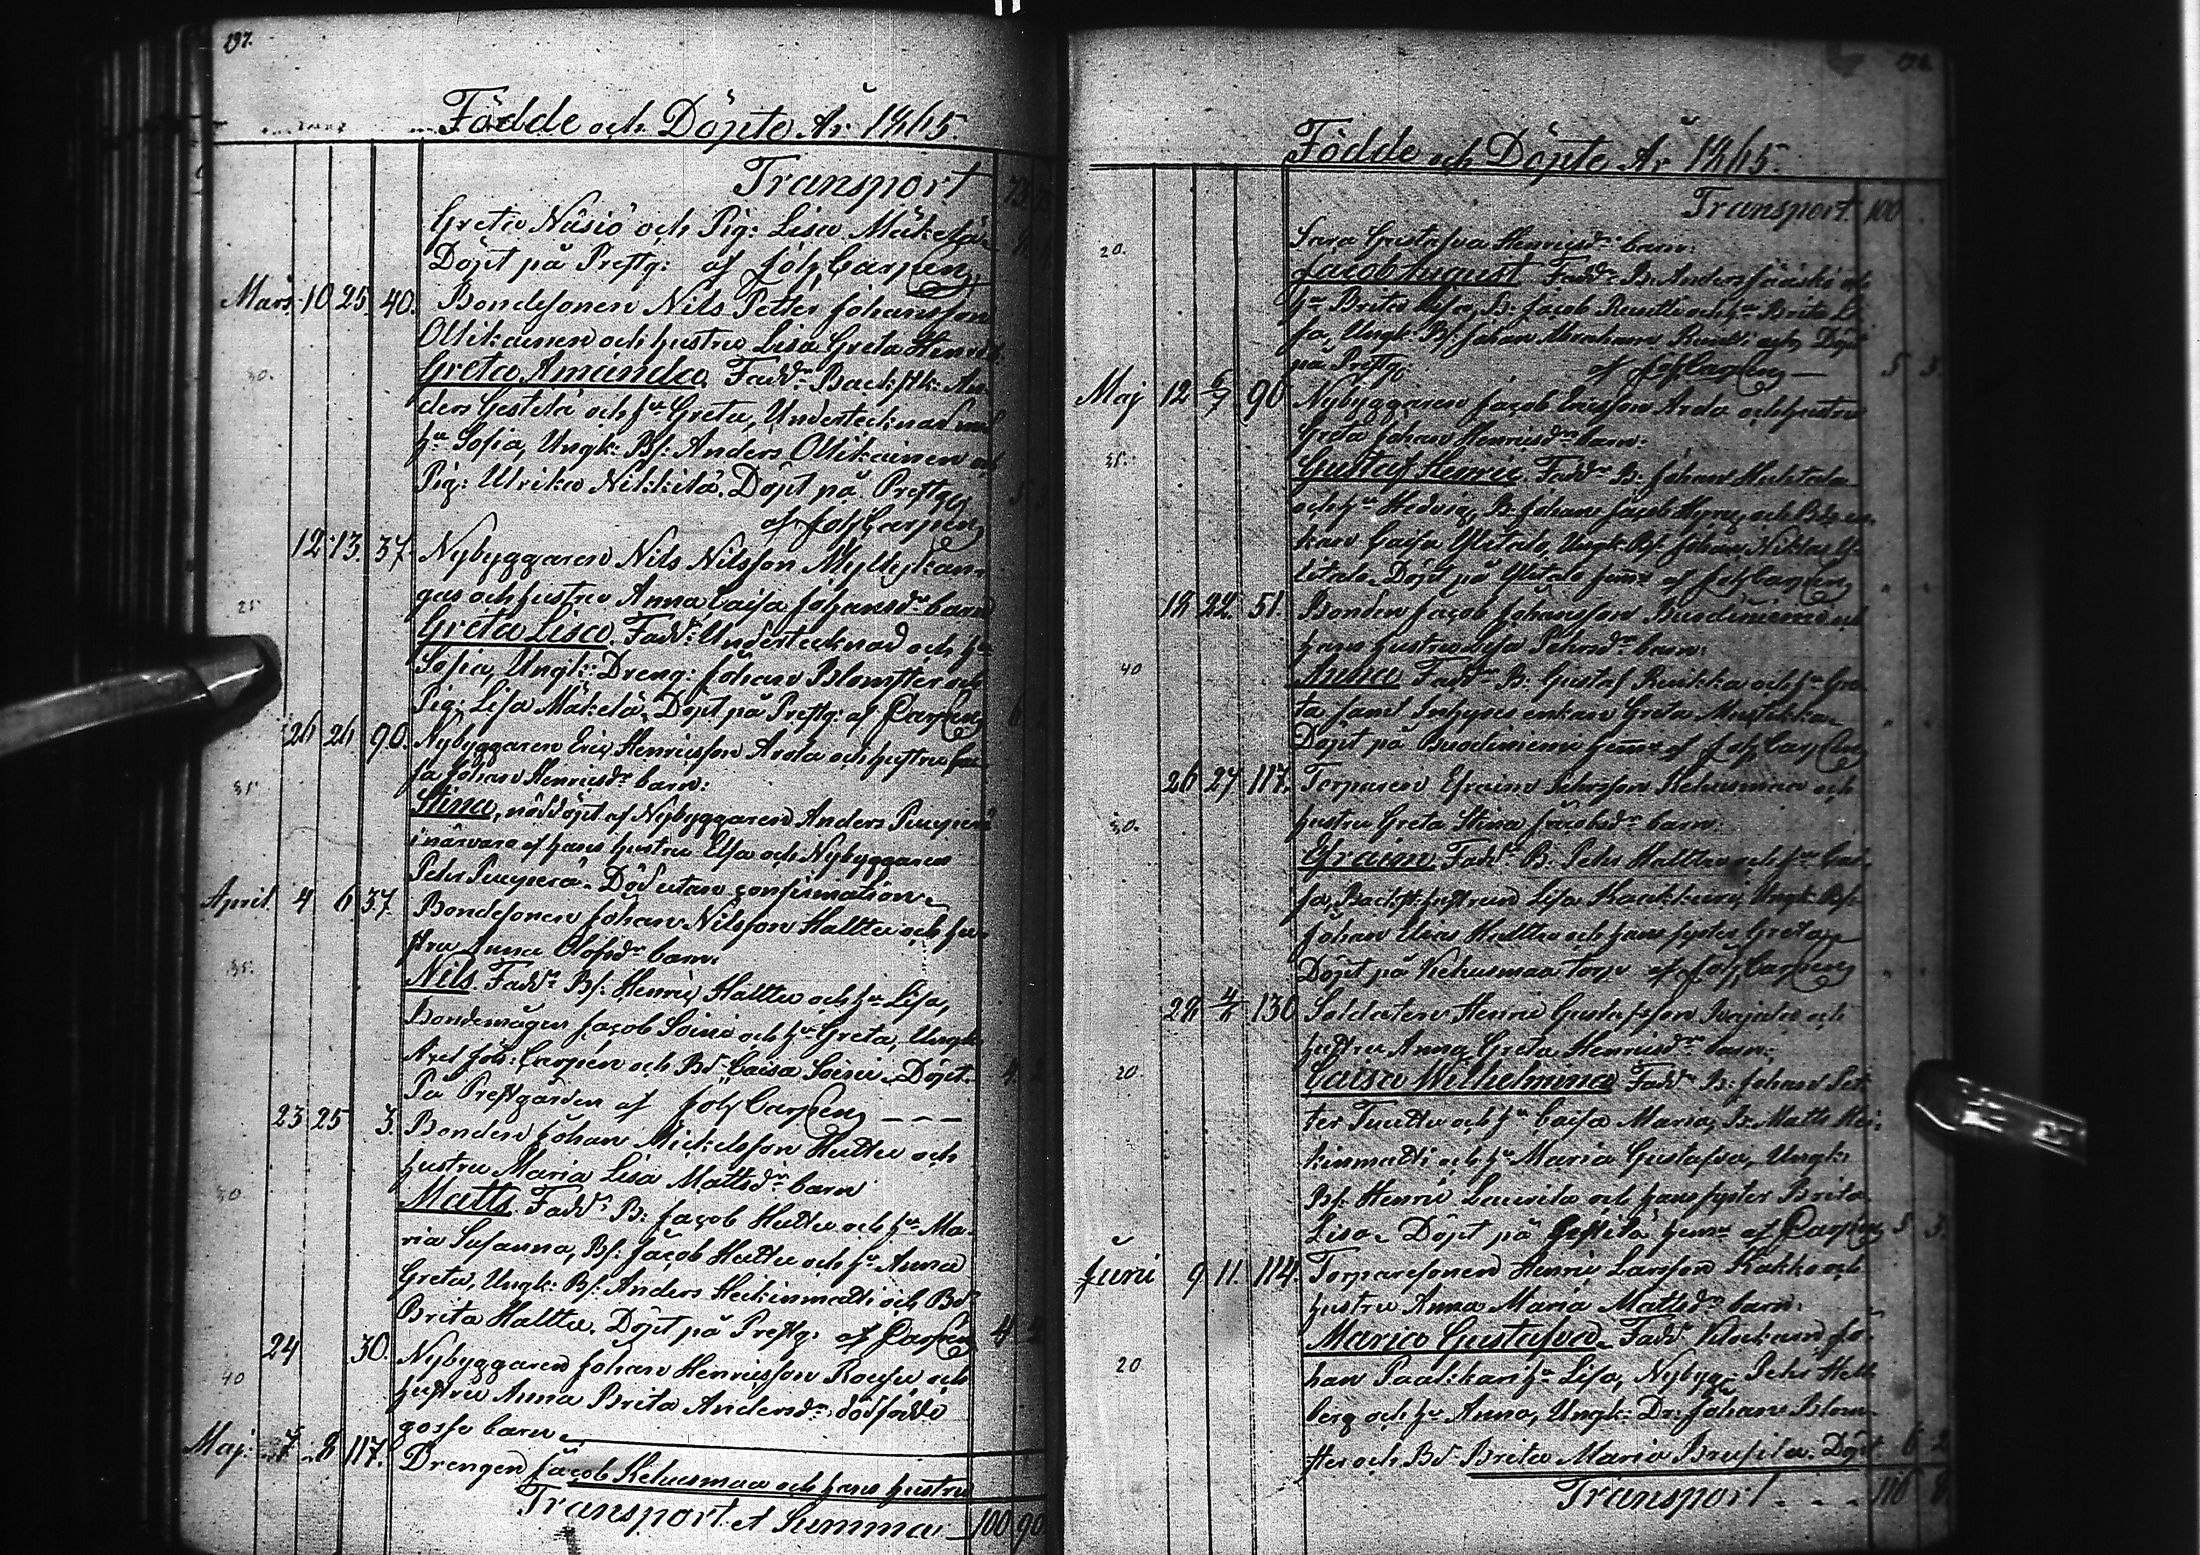 197.
Födde och Döpte År 1865.
Transport 73
Greta Näsiö och Pig: Lisa Mäkelä
Döpt på Prestg: af Joh Carpen
Mars 10 25. 40. Bondesonen Nils Petter Johansson
Ollikainen och hustru Lisa Greta Henrics
30. Greta Amanda. Fadd: Backstk: An-
ders Gestilä och hu Greta, Undertecknad med
hu Sofia, Ungk: Bs: Anders Ollikainen och
Pig: Ulrika Nikkilä. Döpt på Prestg 5
af Joh Carpen
12. 13. 37. Nybyggaren Nils Nilsson Myllykan-
gas och hustru Anna Caisa Johansdr barn
25 Greta Lisa. Fadd: Undertecknad och hu
Sofia, Ungk: Dreng: Johan Blomster och
Pig: Lisa Mäkelä, Döpt på Prestg: af Carpen 6
26 26 90. Nybyggaren Eric Henricsson Arola och hustru
sa Johan Henricsdr barn:
35. Stina, nöddöpt af Nybyggaren Anders
i närvaro af hans hustru Elsa och Nybyggaren
Pehr. Död utan confirmation.
April 4 6 37. Bondesonen Johan Nilsson Halttu och hu-
stru Anna Olofsdr barn:
35. Nils. Fadd: Bs: Henric Halttu och hu Lisa,
Bondemågen Jacob Soini och hu Greta, Ungk:
Axel Joh: Carpén och Bd Caisa Soini. Döpt 4
På Prestgården af Joh Carpen
23 25 3. Bonden Johan Mickelsson Huttu och
hustru Maria Lisa Mattsdr barn
30 Matts. Fadd: B: Jacob Huttu och hu Ma-
ria Susanna, Bs: Jacob Huttu och hu Anna
Greta, Ungk: Bs: Anders Heikinmatti och Bd
Brita Halttu. Döpt på Prestg: af Carpen 4 2
24 30. Nybyggaren Johan Henricsson Rousu och
40 hustru Anna Brita Andersdr dödfödde
gosse barn.
Maj 7 8 117. Drengen Jacob Kehusmaa och hans hustru
Transport et Summa 100 90
Födde och Döpte År 1865.
Transport 100
20. Sara Gustafva Henricsdr barn:
Jacob August. Fadd: B: Anders Jääskö och
hu Brita B: Jacob och hu Brita Li-
sa, Ungk: Bs: Johan Abraham och Döpt
på Prestg. af Joh Carpen 5 3
Maj 12 6/7 90 Nybyggaren Jacob Ericsson Arola och hustru
Greta Johan Henricsdr barn:
35. Gustaf Henric. Fadd: B: Johan
och hu Hedvig, B: Johan Jacob och
Caisa Ylitalo, Ungk: Bs: Johan Niklas Y-
litalo. Döpt på Ylitalo hem: af Joh Carpen
18 22. 51. Bonden Jacob Johansson Buodinniemi och
hans hustru Lisa Pehrsdr barn:
40 Anna. Fadd: B: Gustaf och hu Gre-
ta samt Inhyses enkan Greta
Döpt på Buodinniemi hem: af Joh Carpen
26 27 117. Torparen Efraim Pehrsson Kehusmaa och
hustru Greta Stina Jacobsdr barn:
30. Efraim. Fadd: B: Pehr Halttu och hu
sa, Backst: hustrun Lisa Ungk: Bs:
Johan Elias Halttu och hans syster Greta
Döpt på Kehusmaa torp af Joh Carpen
28 4/6 130 Soldaten Henric Gustafsson och
hustru Anna Greta Henricsdr barn:
20. Caisa Wilhelmina. Fadd: B: Johan Pet-
ter och hu Caisa Maria, B: Matts Hei-
kinmatti och hu Maria Gustafva, Ungk:
Bs: Henric Laurila och hans syster Brita
Lisa. Döpt på Gestilä hem: af Carpen 5 3.
Juni 9 11. 114. Torparesonen Henric Larsson Kukko och
hustru Anna Maria Mattsdr barn:
Maria Gustafva. Fadd: Klockaren Jo-
20 han Paakkari hu Lisa, Nybyg: Pehr Hell-
berg och hu Anna, Ungk: Dr: Johan Blom-
ster och Bd Brita Maria Brusila. Döpt 6 2
Transport 116 8